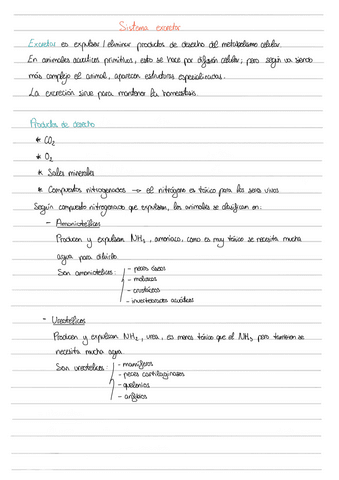 Sistema excretor
Excretar es expulsar / eliminar productos de desecho del metabolismo celular.
En animales acuáticos primitivos, esto se hace por difusión celular; pero según va siendo
más complejo el animal, aparecen estructuras especializadas.
La excreción sirve para mantener la homeostasis.
Productos de desecho
* CO2
* O2
* Sales minerales
* Compuestos nitrogenados → el nitrógeno es tóxico para los seres vivos
Según compuesto nitrogenado que expulsan, los animales se clasifican en:
- Amoniotélicos
Producen y expulsan NH3, amoniaco, como es muy tóxico se necesita mucha
agua para diluirlo
Son amoniotélicos: - peces óseos
- moluscos
- crustáceos
- invertebrados acuáticos
- Ureotélicos
Producen y expulsan NH2, urea, es menos tóxico que el NH3, pero también se
necesita mucha agua
Son ureotélicos: - mamíferos
- peces cartilaginosos
- quelonios
- anfibios